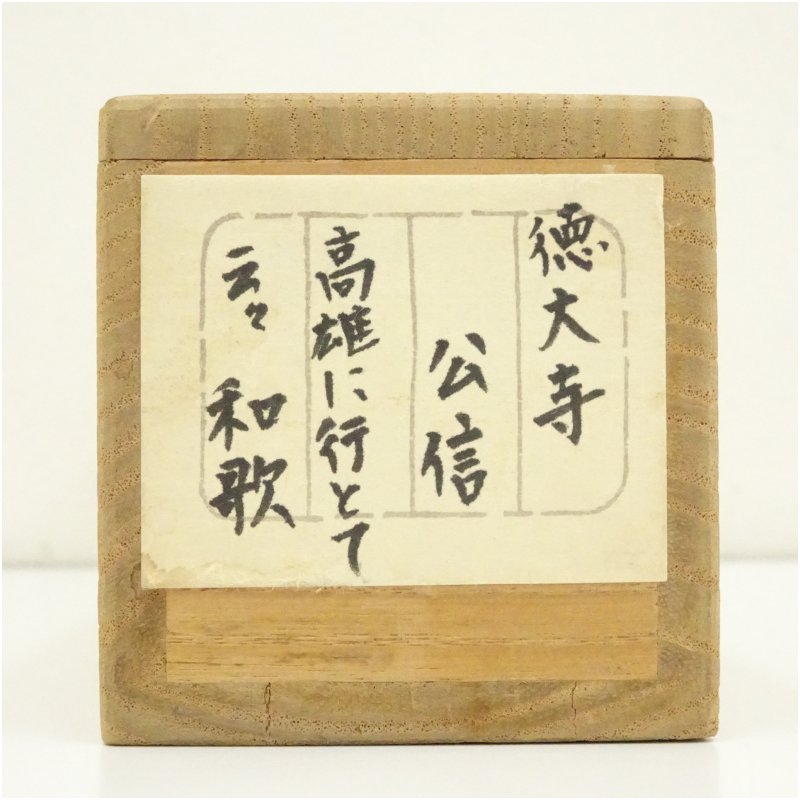 徳大寺
公信
高雄に行とて
云々 和歌